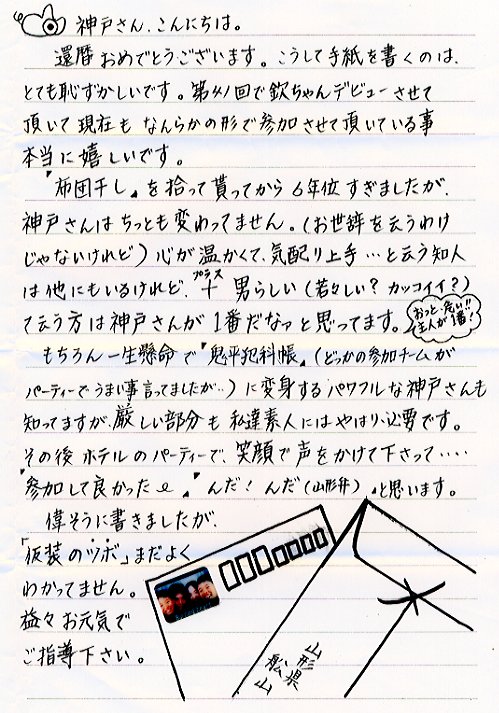 神戸さん、こんにちは。
還暦おめでとうございます。こうして手紙を書くのは、
とても恥ずかしいです。第41回で欽ちゃんデビューさせて
頂いて現在も なんらかの形で参加させて頂いている事
本当に嬉しいです。
『布団干し』を拾って貰ってから6年位すぎましたが、
神戸さんはちっとも変わってません。(お世辞を云うわけ
じゃないけれど)心が温かくて、気配り上手…と云う知人
は他にもいるけれど、＋プラス 男らしい(若々しい？カッコイイ？)
て云う方は神戸さんが1番だなァと思ってます。
おっと、危い!!
主人が1番？
もちろん一生懸命で『鬼平犯科帳』(どっかの参加チームが
パーティーでうまい事言ってましたが…)に変身するパワフルな神戸さんも
知ってますが、厳しい部分も私達素人にはやはり必要です。
その後ホテルのパーティーで、笑顔で声をかけて下さって‥‥
『参加して良かった〜』『んだ！んだ(山形弁)』と思います。
偉そうに書きましたが、
「仮装のツボ」まだよく
わかってません。
益々お元気で
ご指導下さい。
山形県
舩山